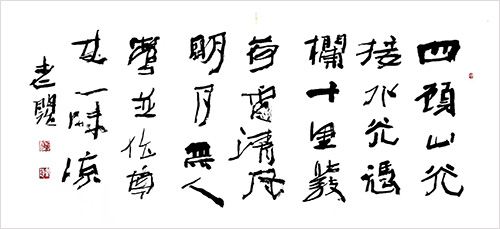 四顧山光
接水光憑
欄十里芰
荷香清風
明月無人
管並作南
來一味涼